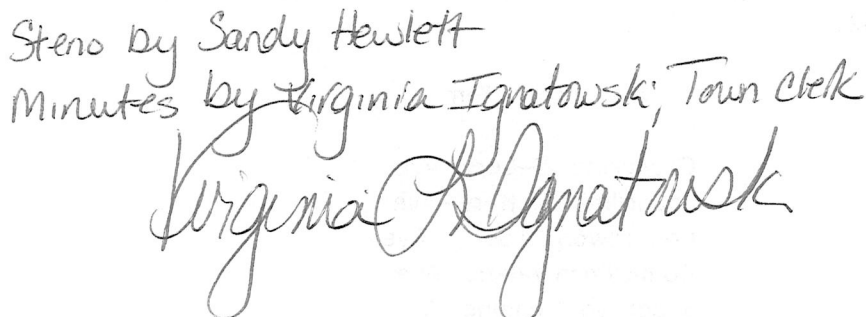 Steno by Sandy Hewlett
Minutes by Virginia Ignatowski, Town Clerk
Virginia L. Ignatowski